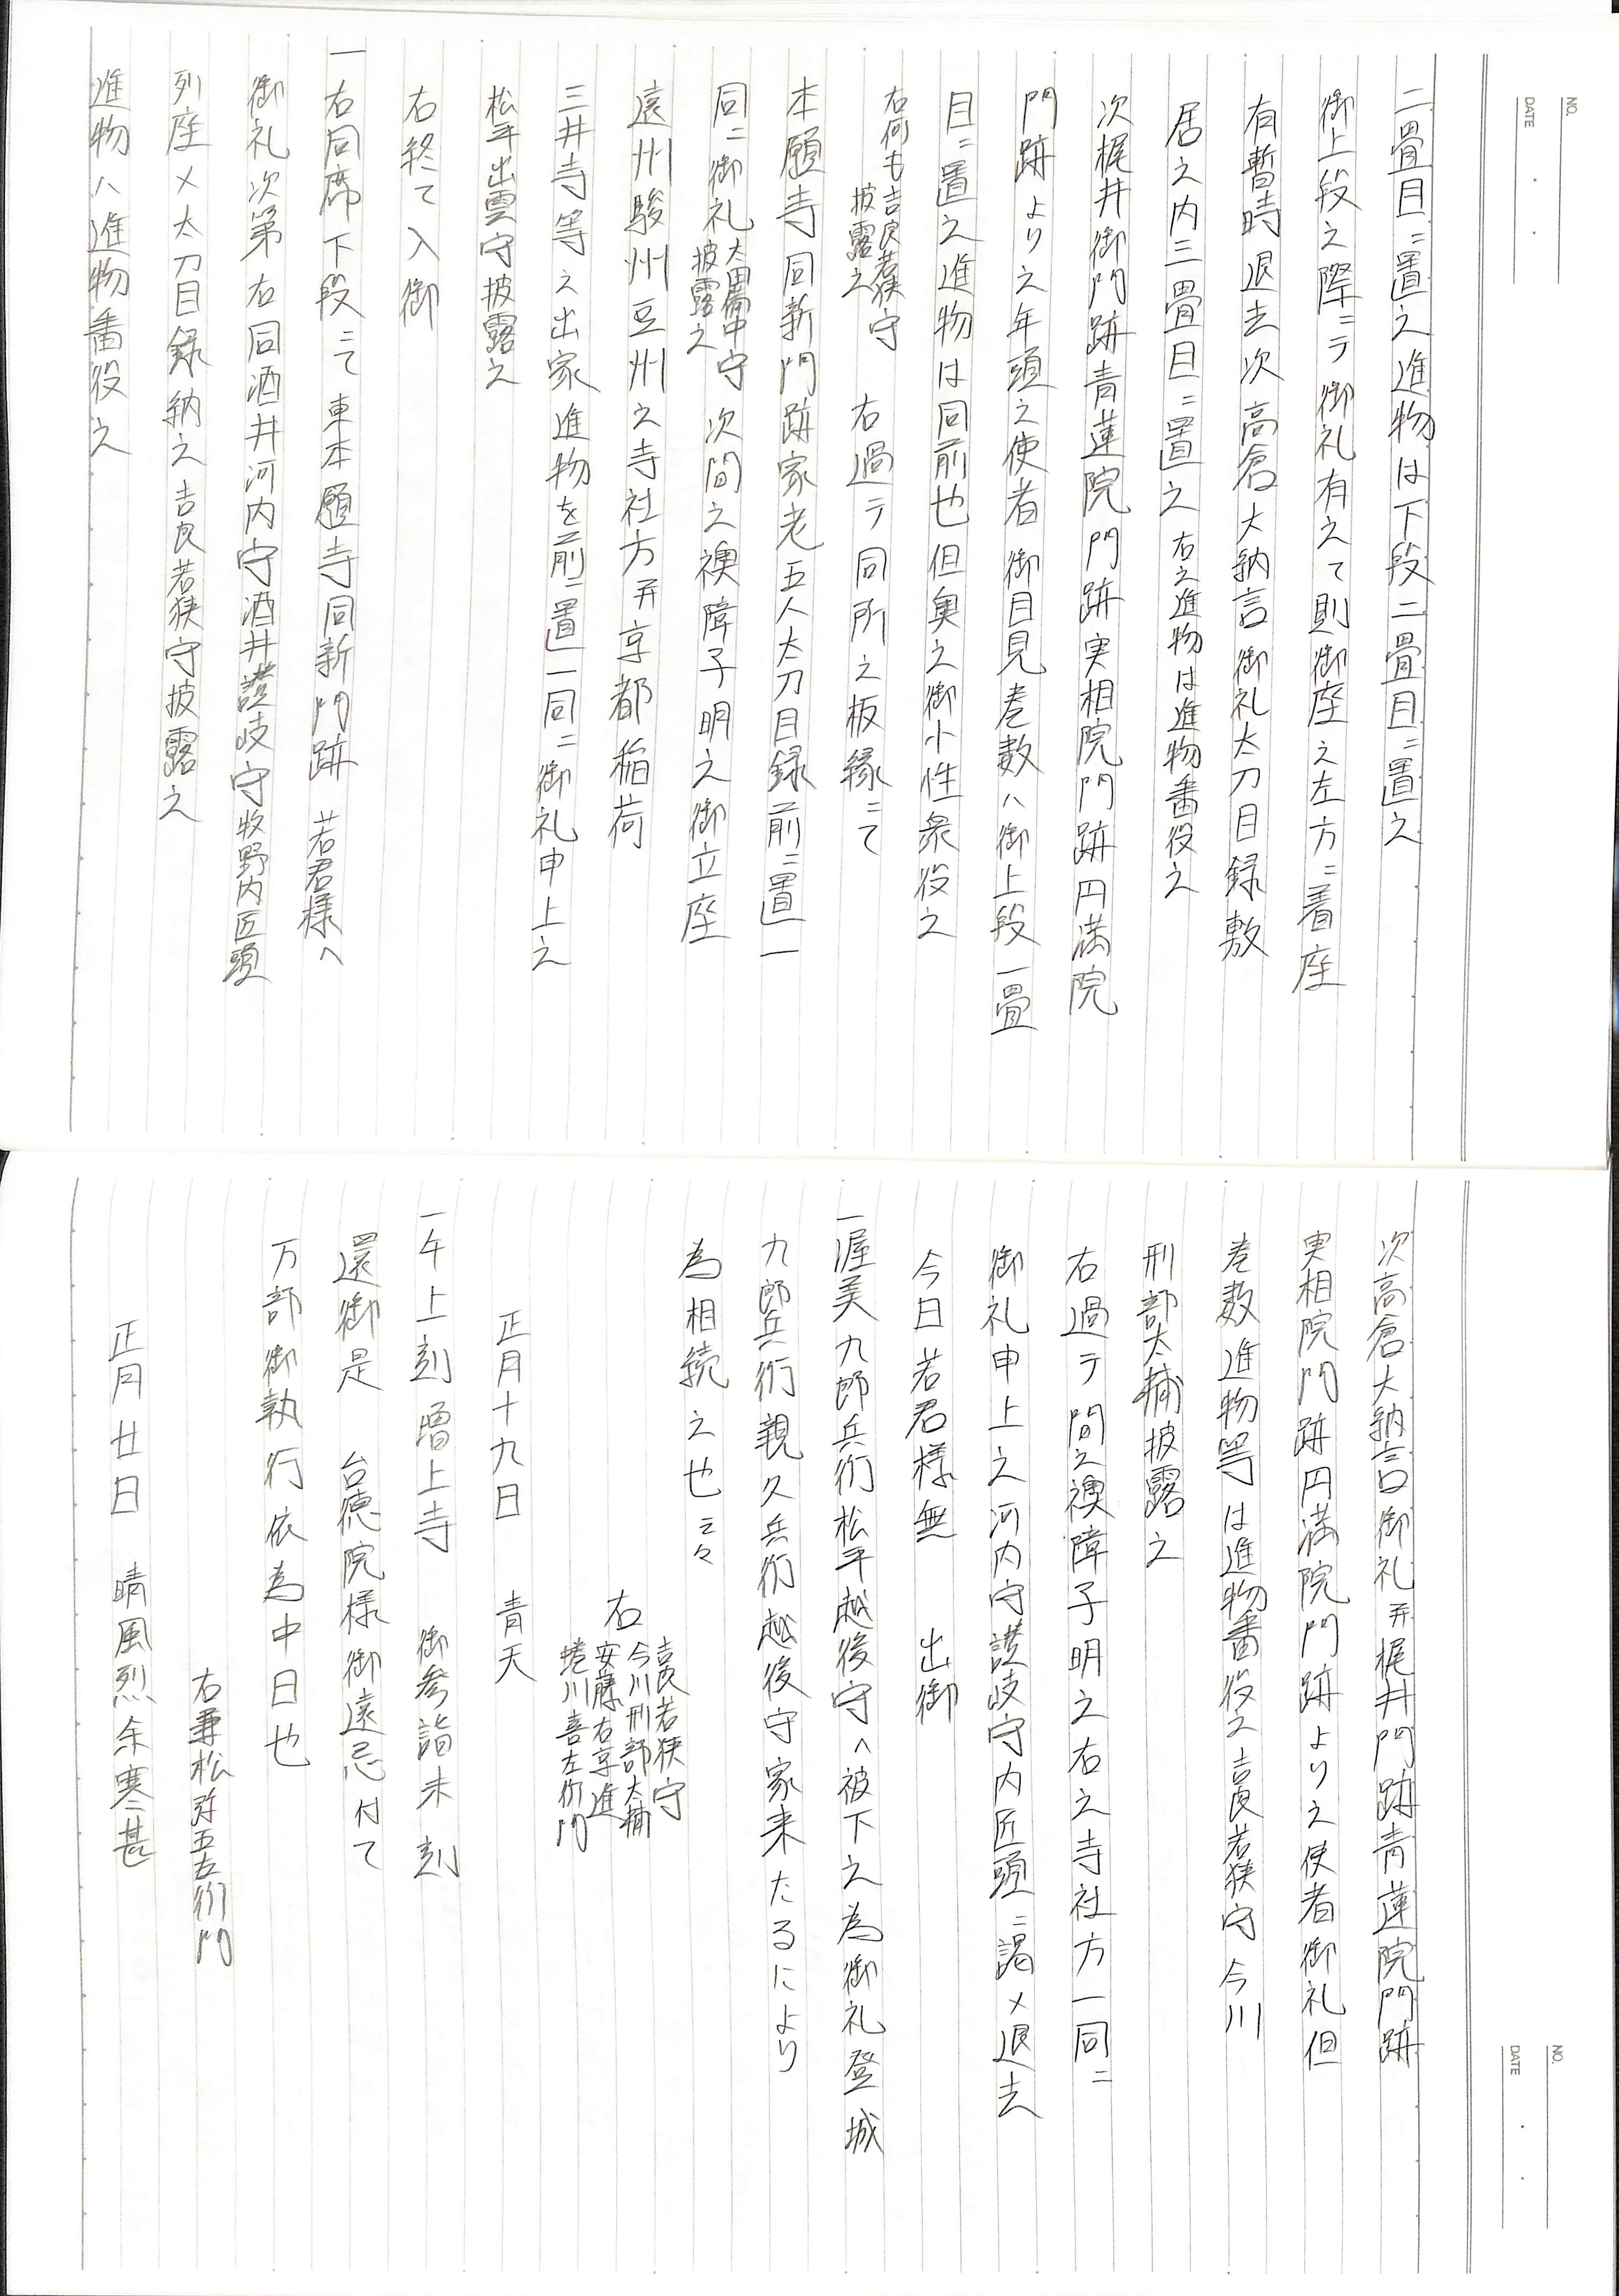 NO.
DATE
二畳目ニ置之進物は下段二畳目ニ置之
御上段之際ニテ御礼有之て則御座之左方ニ着座
有暫時退去次高倉大納言御礼太刀目録敷
居之内三畳目ニ置之 右之進物は進物番役之
次梶井御門跡青蓮院門跡実相院門跡円満院
門跡より之年頭之使者御目見巻数ハ御上段一畳
目ニ置之進物は同前也但奥之御小性衆役之
右何も吉良若狭守披露之 右過テ同所之板縁ニて
本願寺同新門跡家老五人太刀目録前ニ置一
同ニ御礼太田備中守披露之 次間之襖障子明之御立座
遠州駿州豆州之寺社方并京都稲荷
三井寺等之出家進物を前ニ置一同ニ御礼申上之
松平出雲守披露之
右終て入御
一右同席下段ニて東本願寺同新門跡 若君様へ
御礼次第右同酒井河内守酒井讃岐守牧野内匠頭
列座〆太刀目録納之吉良若狭守披露之
進物ハ進物番役之
NO.
DATE
次高倉大納言御礼并梶井門跡青蓮院門跡
実相院門跡円満院門跡よりこ使者御礼但
巻数進物等は進物番役之吉良若狭守今川
刑部太輔披露之
右過テ間之襖障子明之右之寺社方一同ニ
御礼申上之河内守讃岐守内匠頭ニ謁〆退去
今日若君様無 出御
一渥美九郎兵衛松平越後守へ被下之為御礼登城
九郎兵衛親久兵衛越後守家来たるにより
為相続之也云々
右 吉良若狭守
今川刑部太輔
安藤右京進
蜷川喜左衛門
正月十九日 青天
一午上刻増上寺 御参詣未刻
還御是 台徳院様御遠忌付て
万部御執行依為中日也
右兼松弥五左衛門
正月廿日 晴風烈余寒ニ甚